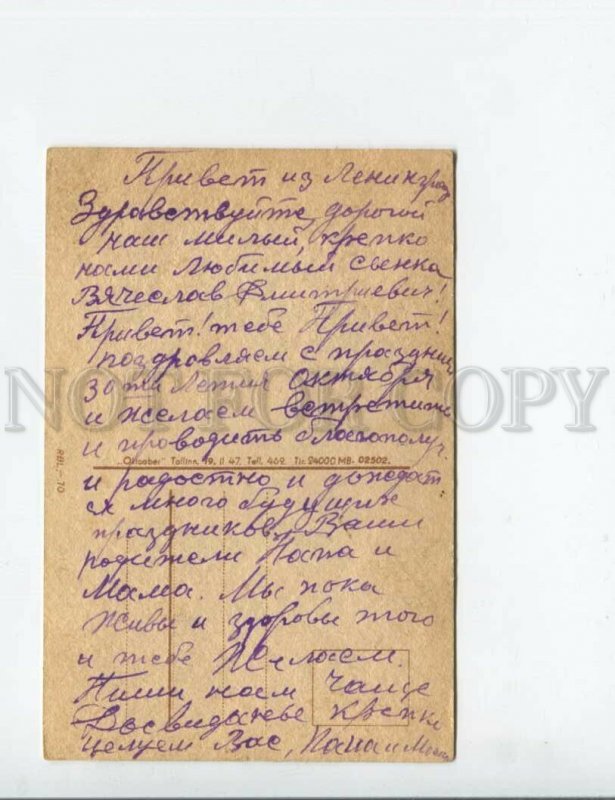 Привет из Ленинград
Здравствуйте дорогой
наш милый, крепко
нами любимый сынка
Вячеслав Дмитриевич!
Привет! тебе Привет!
поздровляем с праздник
30 ти Летия Октября
NOT FOR COPY
и желаем встретить
и проводить благополуч.
"Oktoober" Tallinn, 19. II 47. Tell. 462. Tir. 24000 MB- 02502.
и радостно и дождат
ся много будущих
праздников. Ваши
родители Папа и
Мама. Мы пока
живы и здоровы того
и тебе Желаем.
Пиши нам чаще
Досвиданье крепко
целуем Вас, Папа и Мама